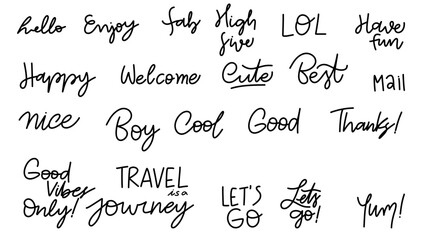 hello Enjoy fab High five LOL Have fun
Happy Welcome Cute Best Mail
nice Boy Cool Good Thanks!
Good Vibes Only! TRAVEL is a journey LET'S GO Let's go! Yum!